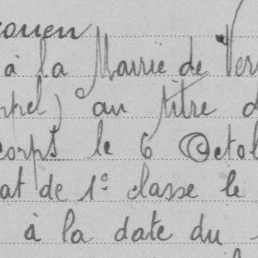 à la Mairie de Ver
ppel) au titre d
corps le 6 Octob
at de 1e classe le
à la date du